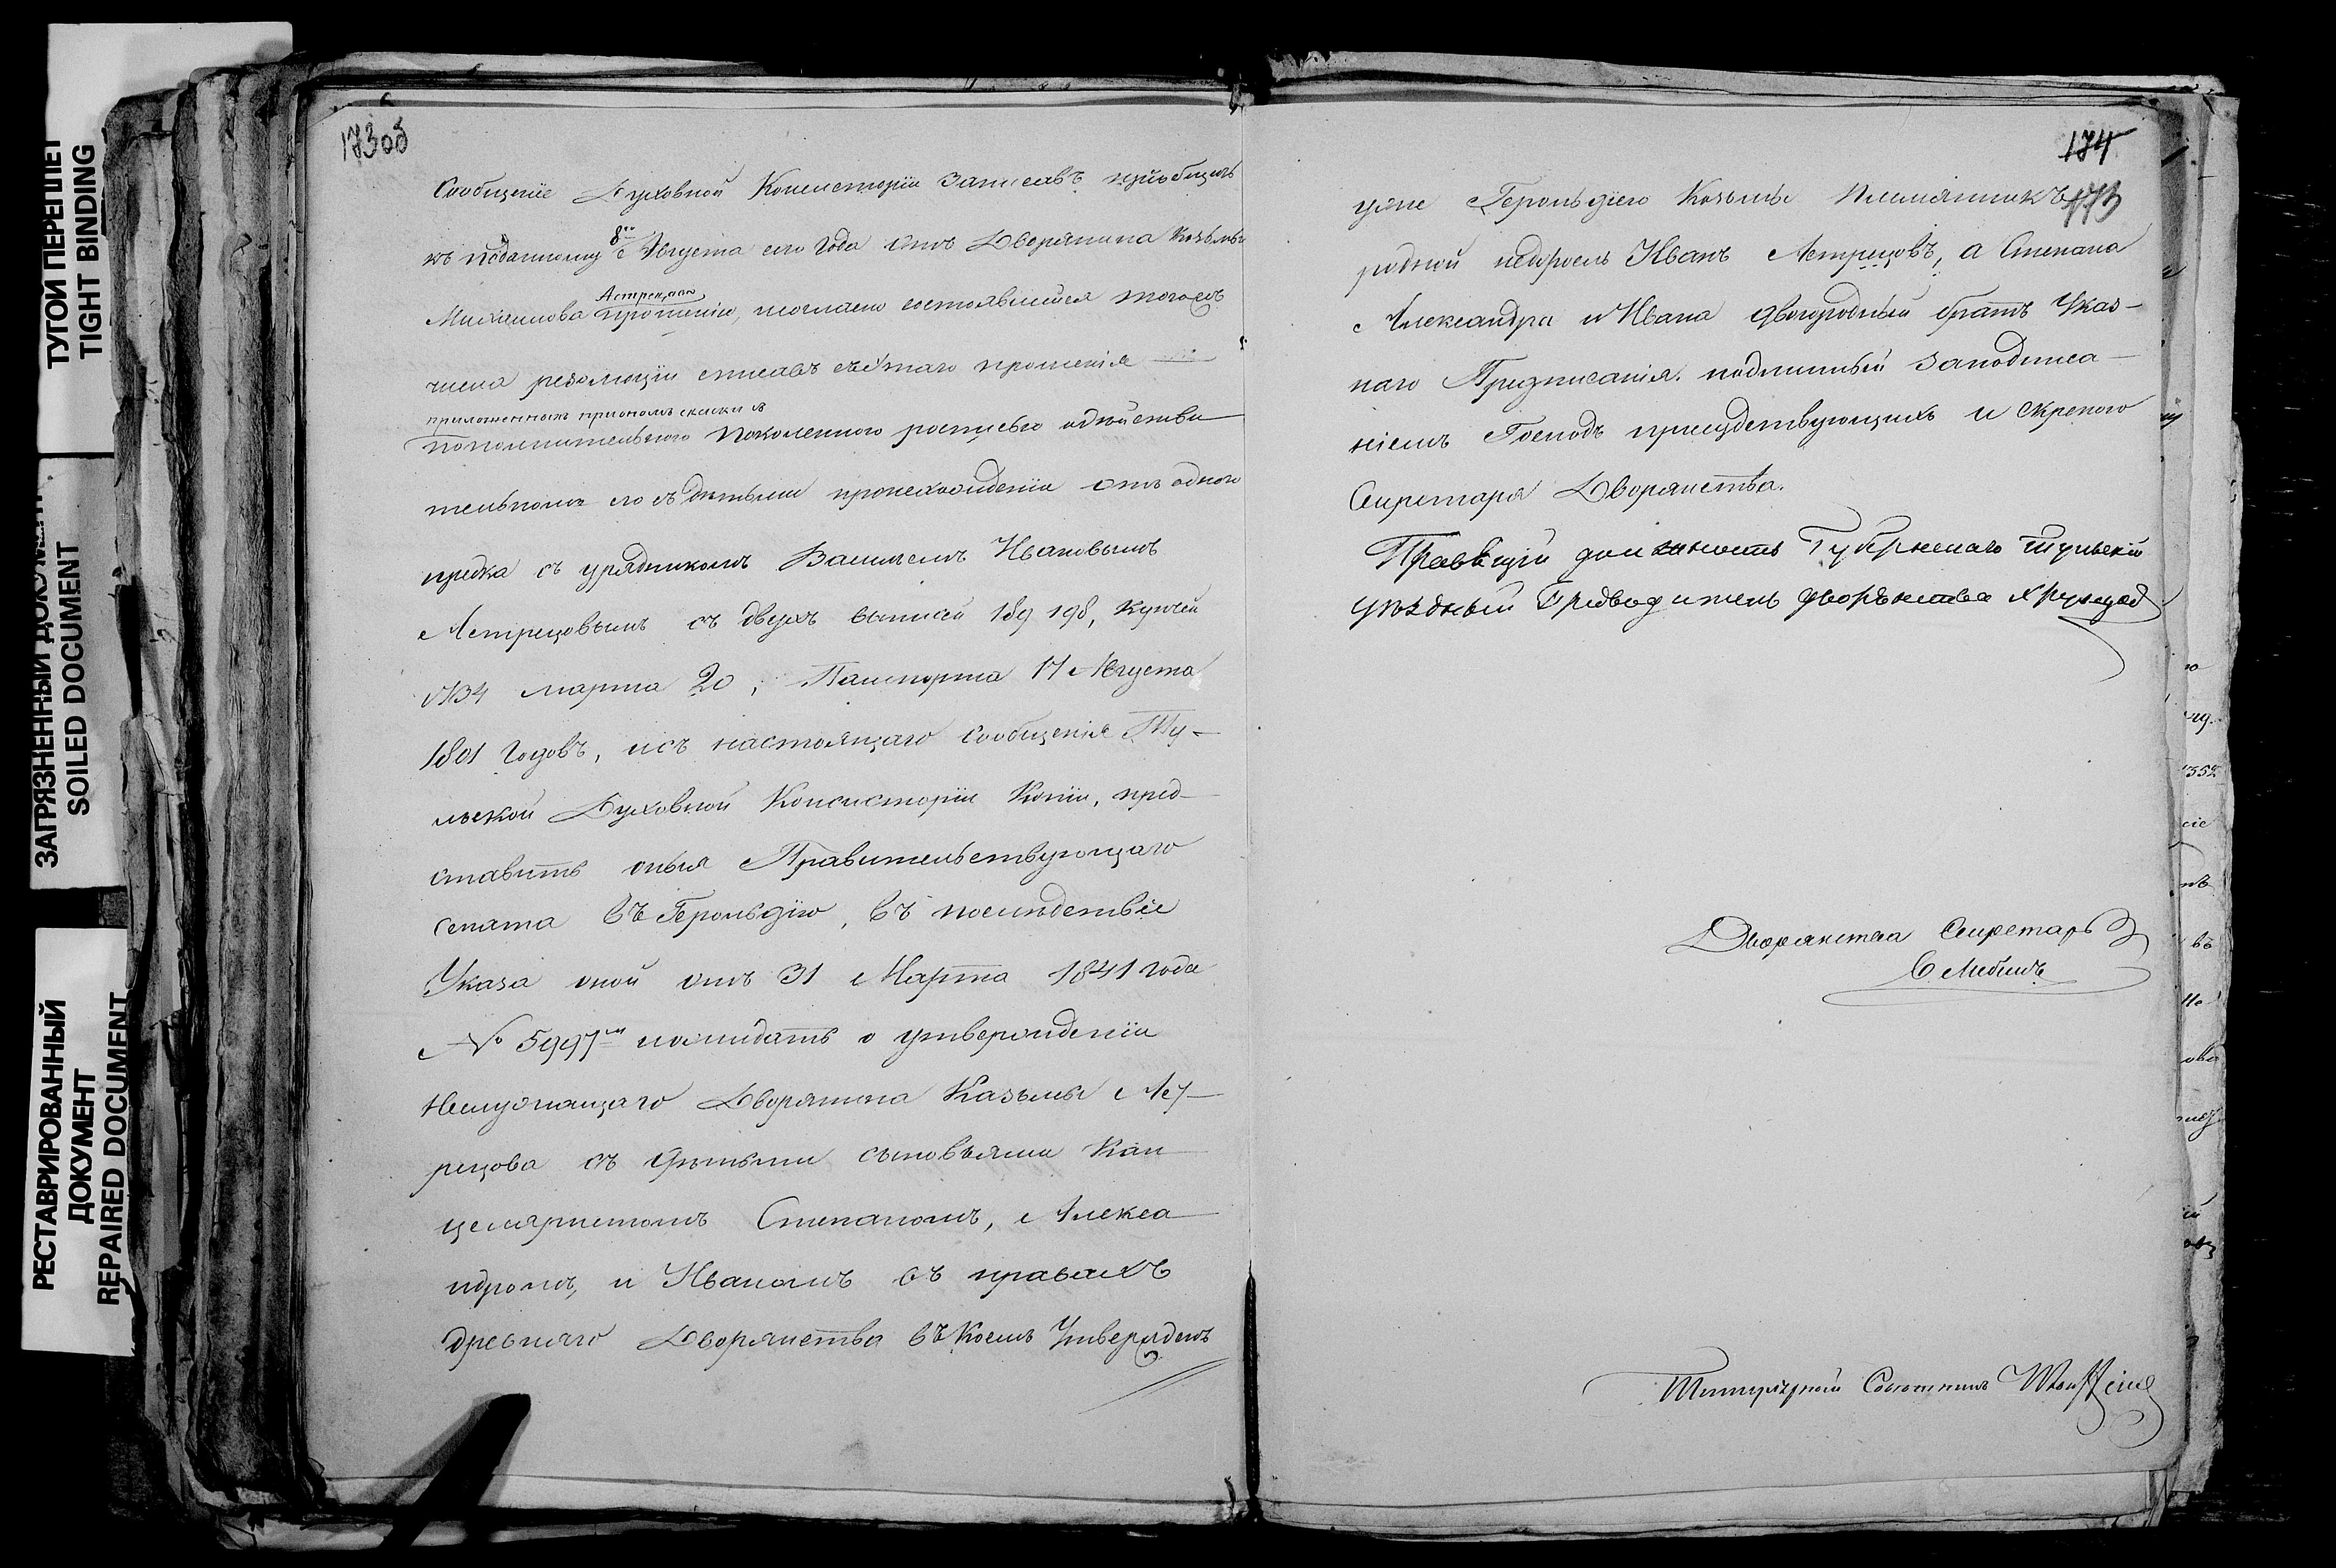 ТУГОЙ ПЕРЕПЛЕТ
TIGHT BINDING
ЗАГРЯЗНЕННЫЙ ДОКУМЕНТ
SOILED DOCUMENT
РЕСТАВРИРОВАННЫЙ
ДОКУМЕНТ
REPAIRED DOCUMENT
173об
Сообщеніе Духовной Консисторіи записавъ пріобщить
къ поданному 8го Августа сего Года отъ Дворянина Козьмы
Астрецова
Михаилова прошенію, согласно состоявшейся тогожъ
числа резолюціи списавъ съ этаго прошенія
приложенныхъ при ономъ
пополнительного поколенного росписью
его съ детьми происхожденіи отъ одного
предка съ урядникомъ Васильемъ Ивановымъ
Астрецовымъ съ двухъ выписей 189 198, Купчей
1734 марта 20, Пашпорта 17 Августа
1801 Годовъ, исъ настоящаго сообщенія Ту-
льской Духовной Консисторіи Копіи, пред-
ставить оныя Правительствующаго
Сената въ Герольдію, въ последствіе
Указа оной отъ 31 Марта 1841 года
№ 5997 о утвержденіи
Неслужащаго Дворянина Казьмы Аст-
рецова съ детьми сыновьями Кан-
целяристомъ Степаномъ, Алекса-
ндромъ, и Иваномъ въ правахъ
древняго Дворянства въ коемъ Утвержденъ
174
173
уже Герольдіею Козьмы племянникъ
родной недоросль Иванъ Астрецовъ, а Степана
Александра и Ивана двоюродный братъ Указ-
наго Предписанія. подлинный заподписа-
ніемъ Господъ присудствующихъ и скрепою
Секретаря Дворянства.
Правящій должность Губернскаго Тульскій
уѣздный Предводитель дворянства Хрущов
Дворянства Секретарь
Титулярной Советникъ